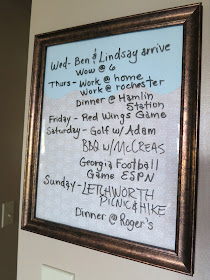 Wed- Ben & Lindsay arrive
Wow @ 6
Thurs - Work @ home
Work @ rochester
Dinner @ Hamlin
Station
Friday - Red Wings Game
Saturday - Golf w/ Adam
BBQ w/ McCREAS
Georgia Football
Game ESPN
Sunday - LETCHWORTH
PICNIC & HIKE
Dinner @ Roger's